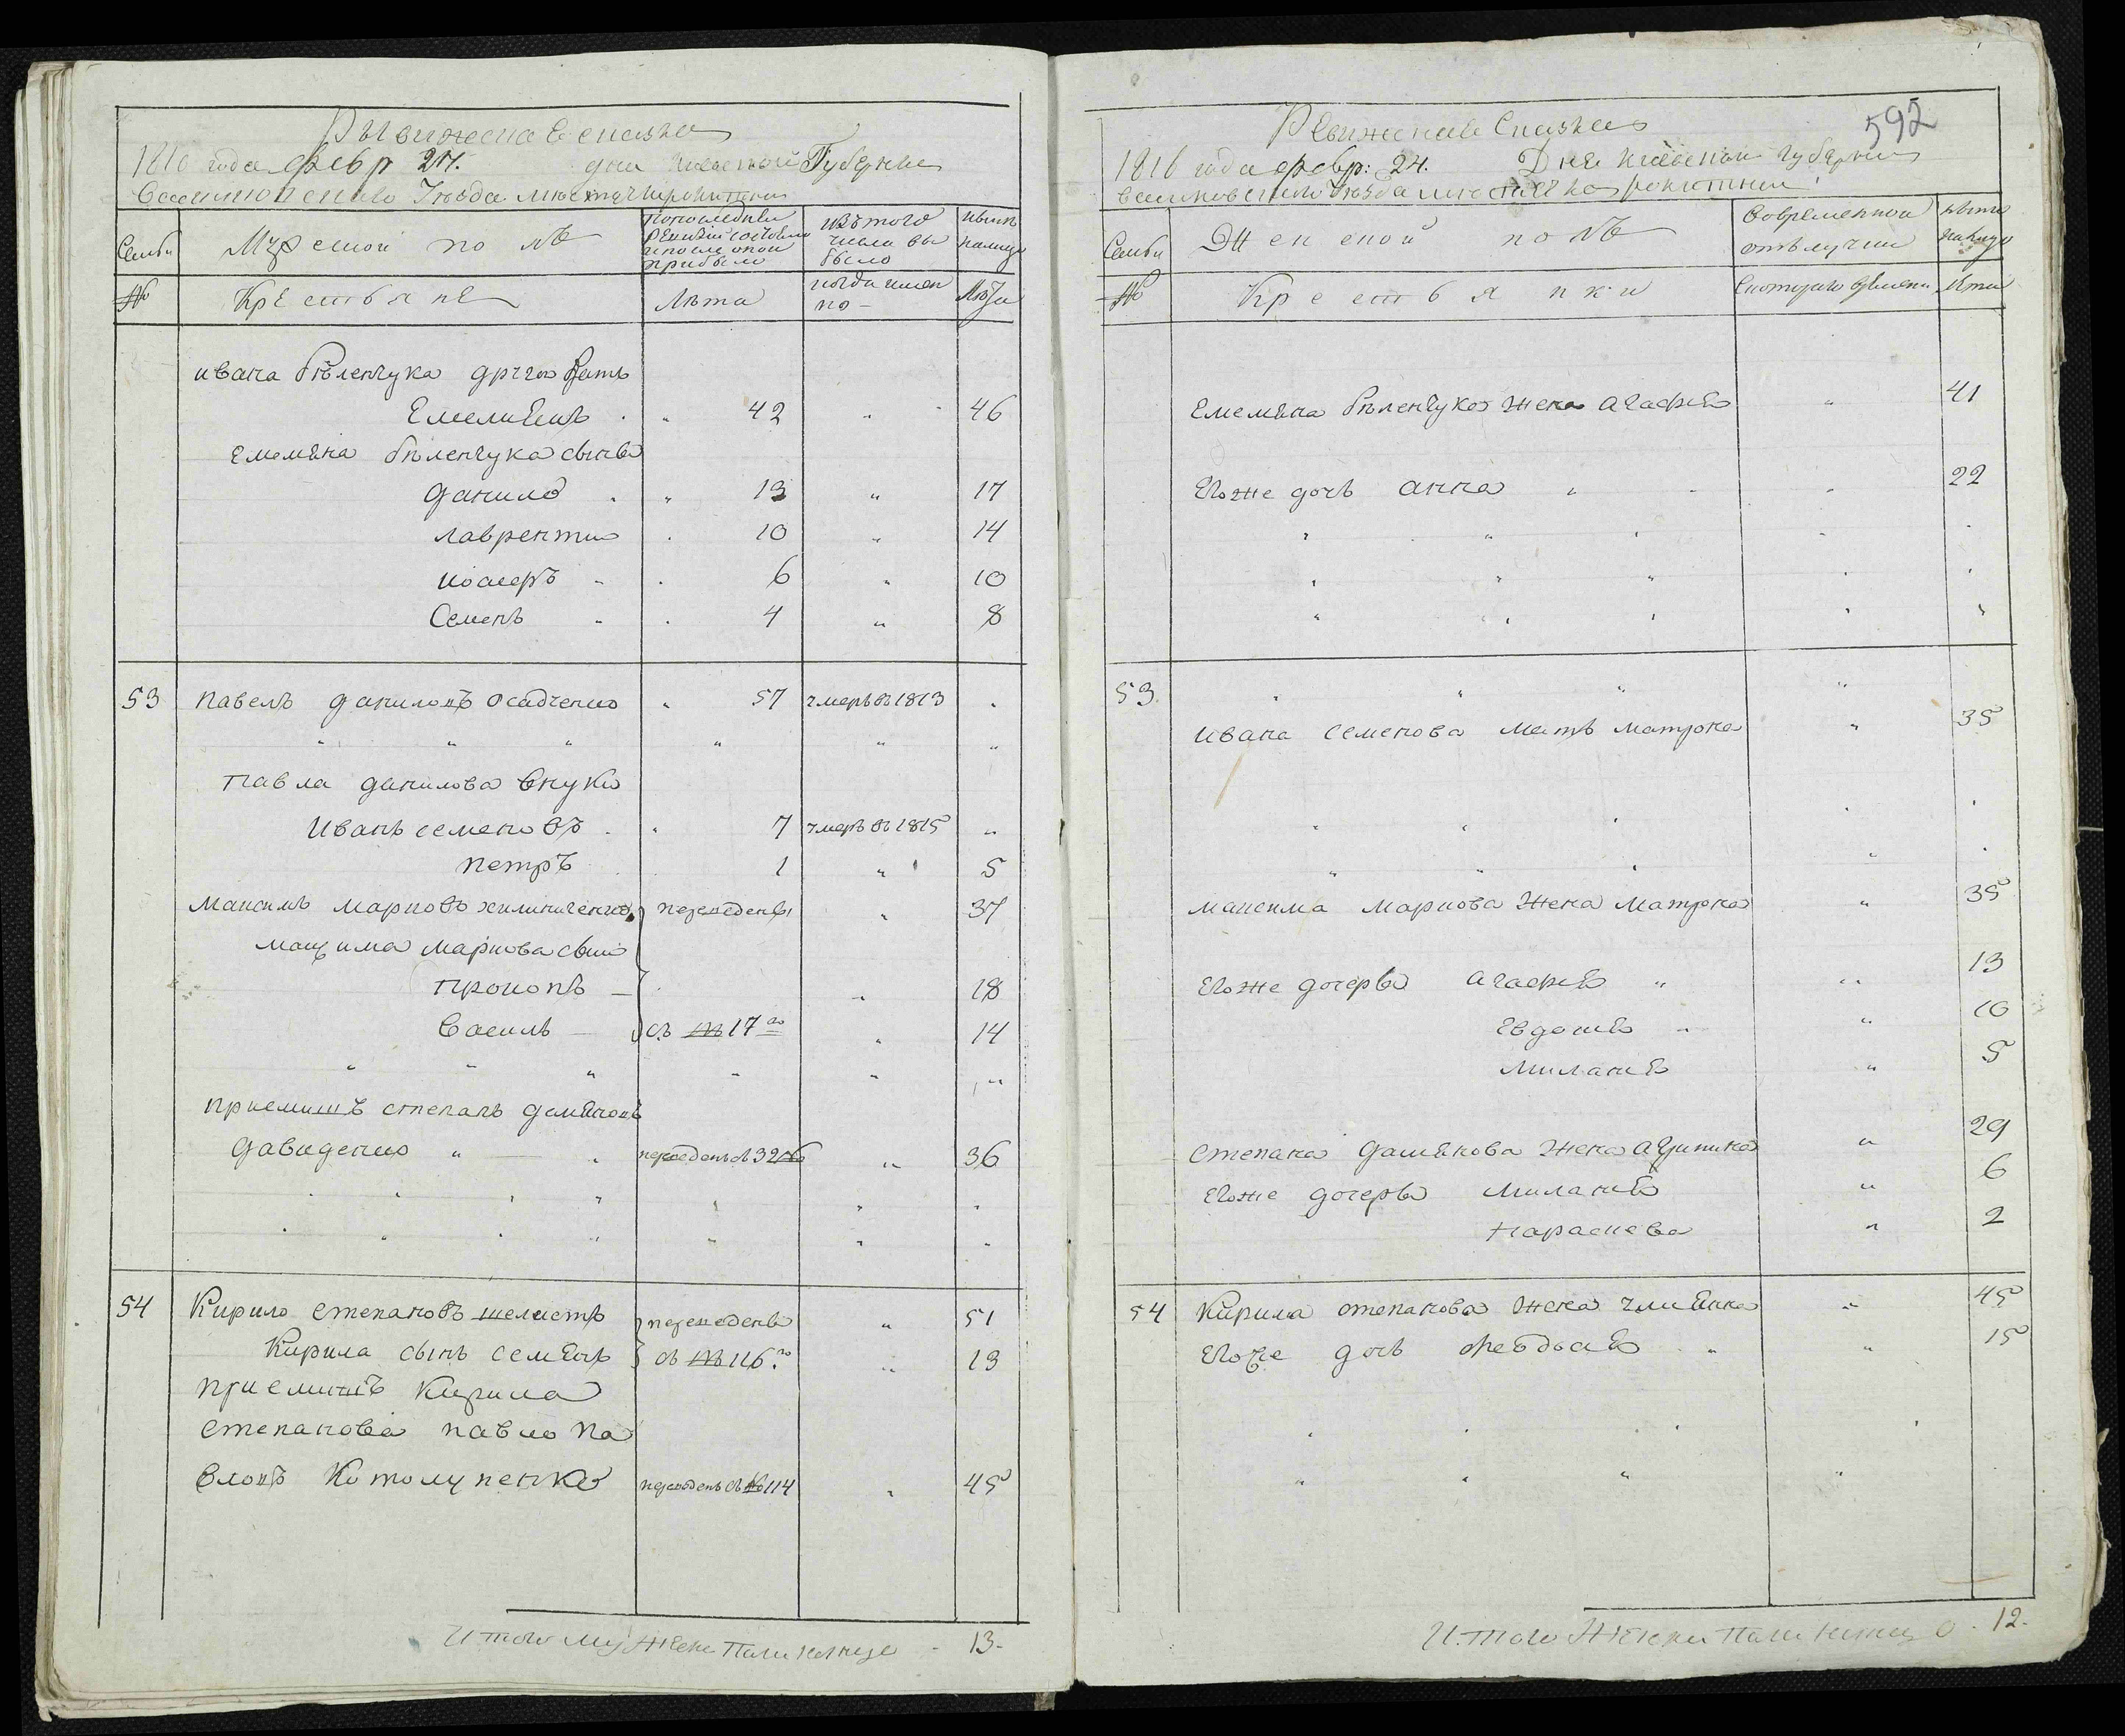 Ревижеская Сказка
1816 года февр 24. дня Киевской Губернии
Василковского Уезда местечка рокитни
Семьи
Мужеской полъ
По последней ревизии состояло и после оной прибыло
Изъ того числа выбыло
Ныне на лицо
№
Крестьяне
Лета
когда имен но -
Лета
ивана беленчука другой братъ
Емелиянъ 42 " 46
Емелияна беленчука сыновья
Данило " 13 " 17
лаврентий 10 " 14
иосифъ 6 " 10
Семенъ 4 " 8
53 павелъ даниловъ осадченко " 57 умеръ въ 1813
" " " " " "
павла данилова внуки
Иванъ семеновъ " 7 умеръ въ 1815 "
петръ 1 " 5
максимъ марковъ химиченко переведены " 37
максима маркова сыны
прокопъ - " 18
василь - съ № 17го " 14
" " " " " "
приемышъ степанъ дамяновъ
давиденко " переведенъ съ 32 № " 36
54 Кирило степановъ шелестъ переведены " 51
Кирила сынъ семенъ съ № 116го " 13
приемышъ Кирила
степанова павло па
вловъ Котолупенко переведенъ съ № 114 " 45
Итого мужеска пола на лице - 13-
592
Ревижская Сказка
1816 года февр: 24. Дня киевской губернии
василковского уезда местечка рокитни
Семьи
Женской полъ
Во временной отлучки
ныне на лицо
№
Крестьянки
С которого времени
Лета
Емелияна беленчука жена агафия " 41
Егоже дочь анна " " 22
53
ивана семенова мать матрона " 35
максима маркова жена матрона " 35
Егоже дочеря агафия " 13
Евдокия " 10
милания " 5
степана дамянова жена агрипина " 29
Егоже дочеря милания " 6
параскева " 2
54 Кирила степанова жена улияна " 45
Егоже дочь феодосия " 15
Итого Женска Пола на лицо - 12-